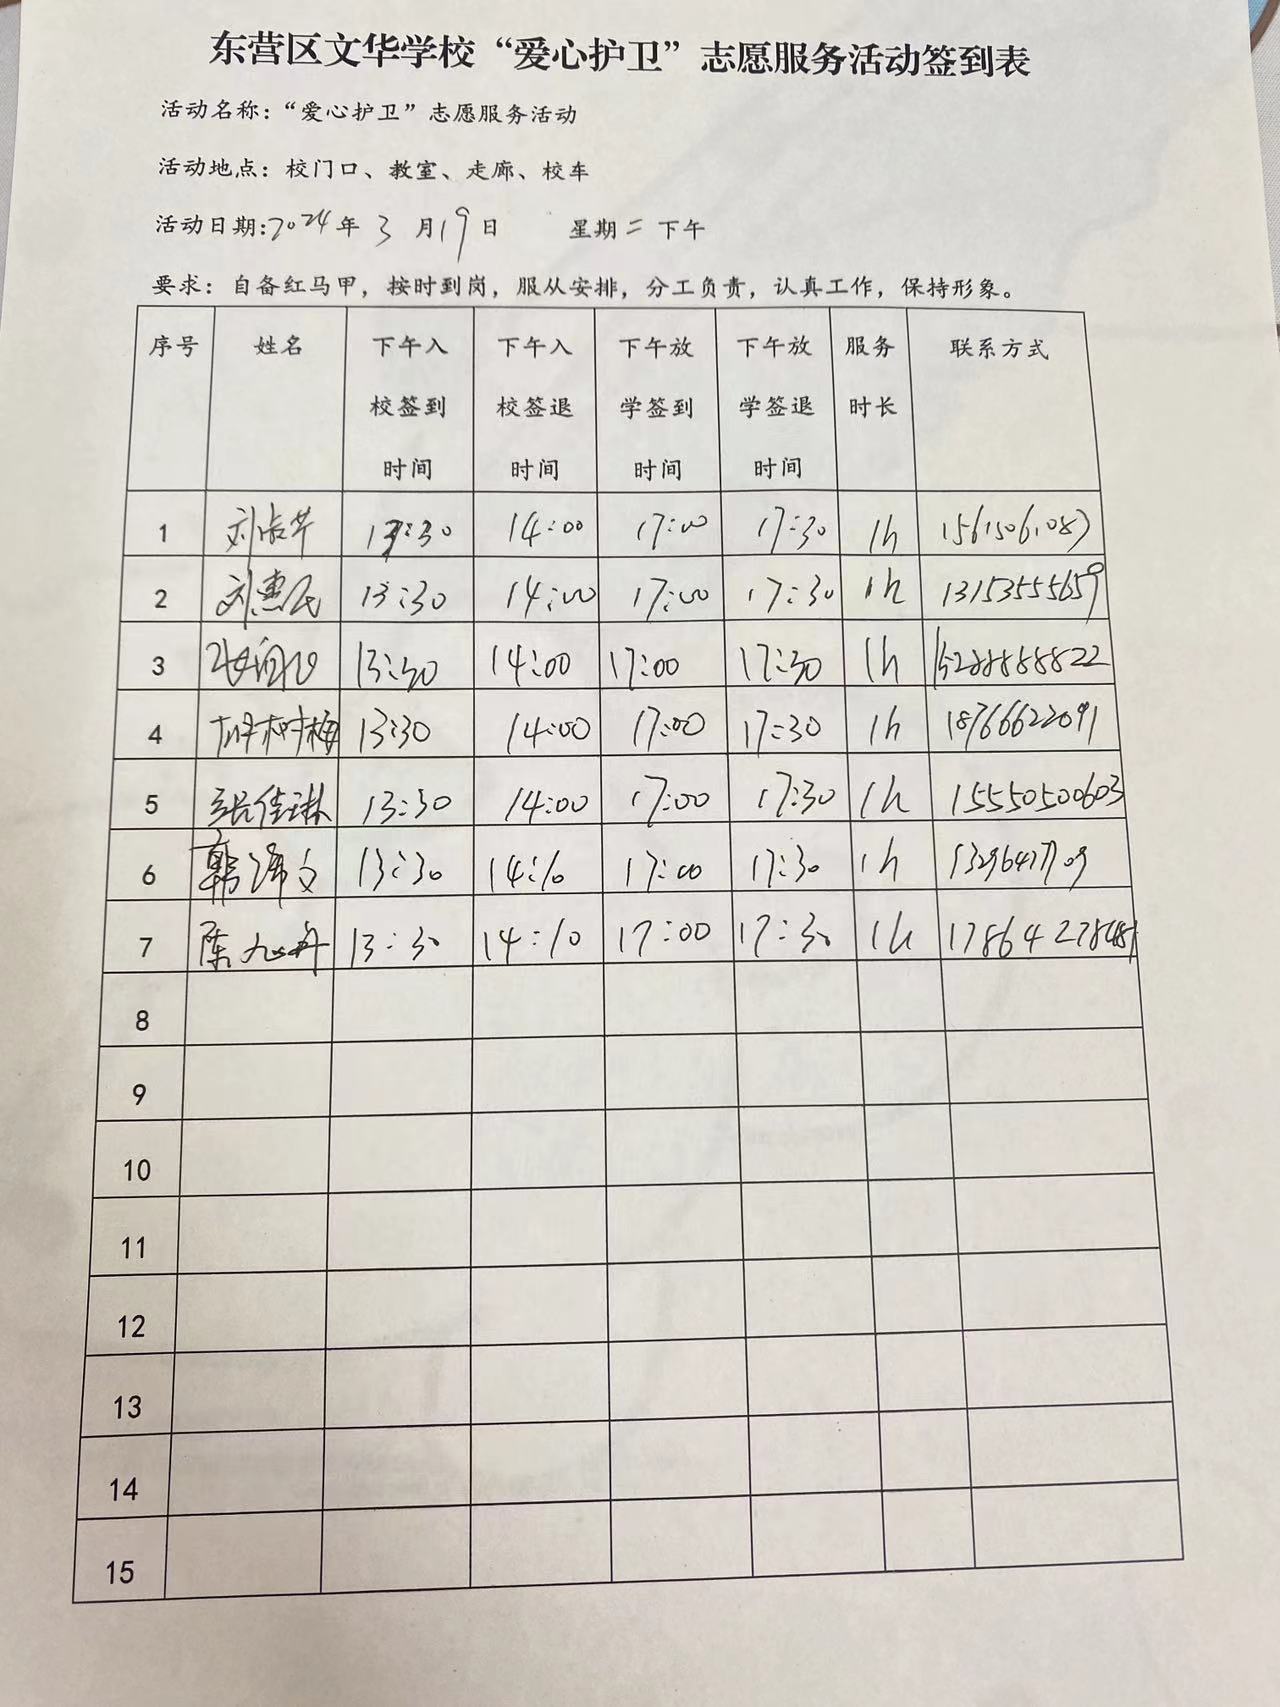 东营区文华学校“爱心护卫”志愿服务活动签到表
活动名称：“爱心护卫”志愿服务活动
活动地点：校门口、教室、走廊、校车
活动日期:2024年 3 月19日 星期二 下午
要求：自备红马甲，按时到岗，服从安排，分工负责，认真工作，保持形象。
序号 姓名 下午入校签到时间 下午入校签退时间 下午放学签到时间 下午放学签退时间 服务时长 联系方式
1 13:30 14:00 17:00 17:30 1h 15615061087
2 刘惠民 13:30 14:00 17:00 17:30 1h 13153555659
3 13:30 14:00 17:00 17:30 1h
4 胡树梅 13:30 14:00 17:00 17:30 1h 18766622091
5 张佳琳 13:30 14:00 17:00 17:30 1h 15550500603
6 13:30 14:10 17:00 17:30 1h
7 陈 13:30 14:10 17:00 17:30 1h
8
9
10
11
12
13
14
15